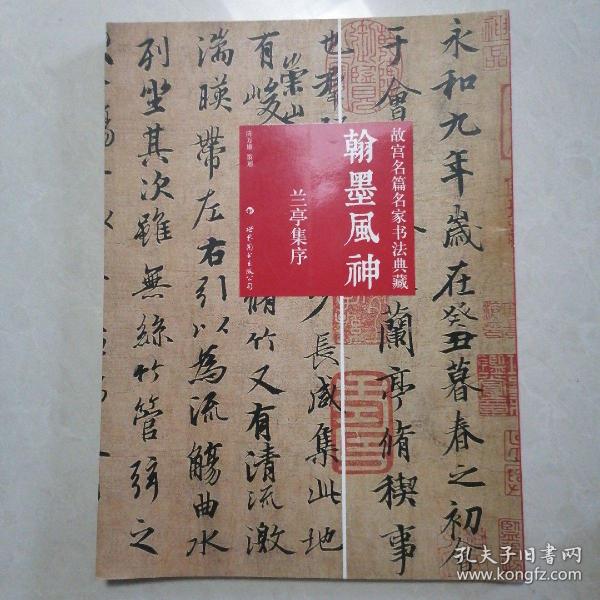 永和九年歲在癸丑暮春之初會
于會
蘭亭脩稧事
也羣
少長咸集此地
有
崇山
峻
脩竹又有清流激
湍暎帶左右引以為流觴曲水
列坐其次雖無絲竹管弦之
故宫名篇名家书法典藏
翰墨風神
兰亭集序
世界图书出版公司
孔夫子旧书网
www.kongfz.com